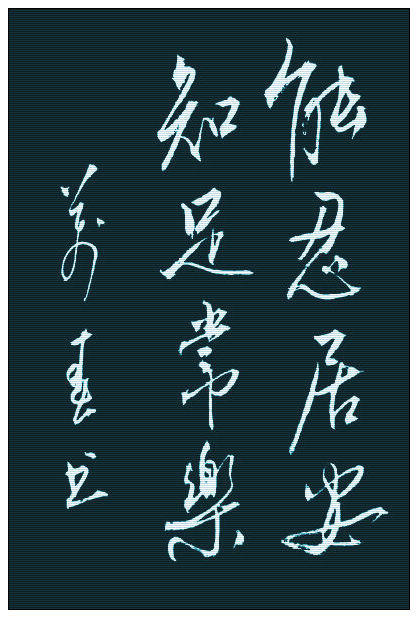 能忍居安
知足常樂
书